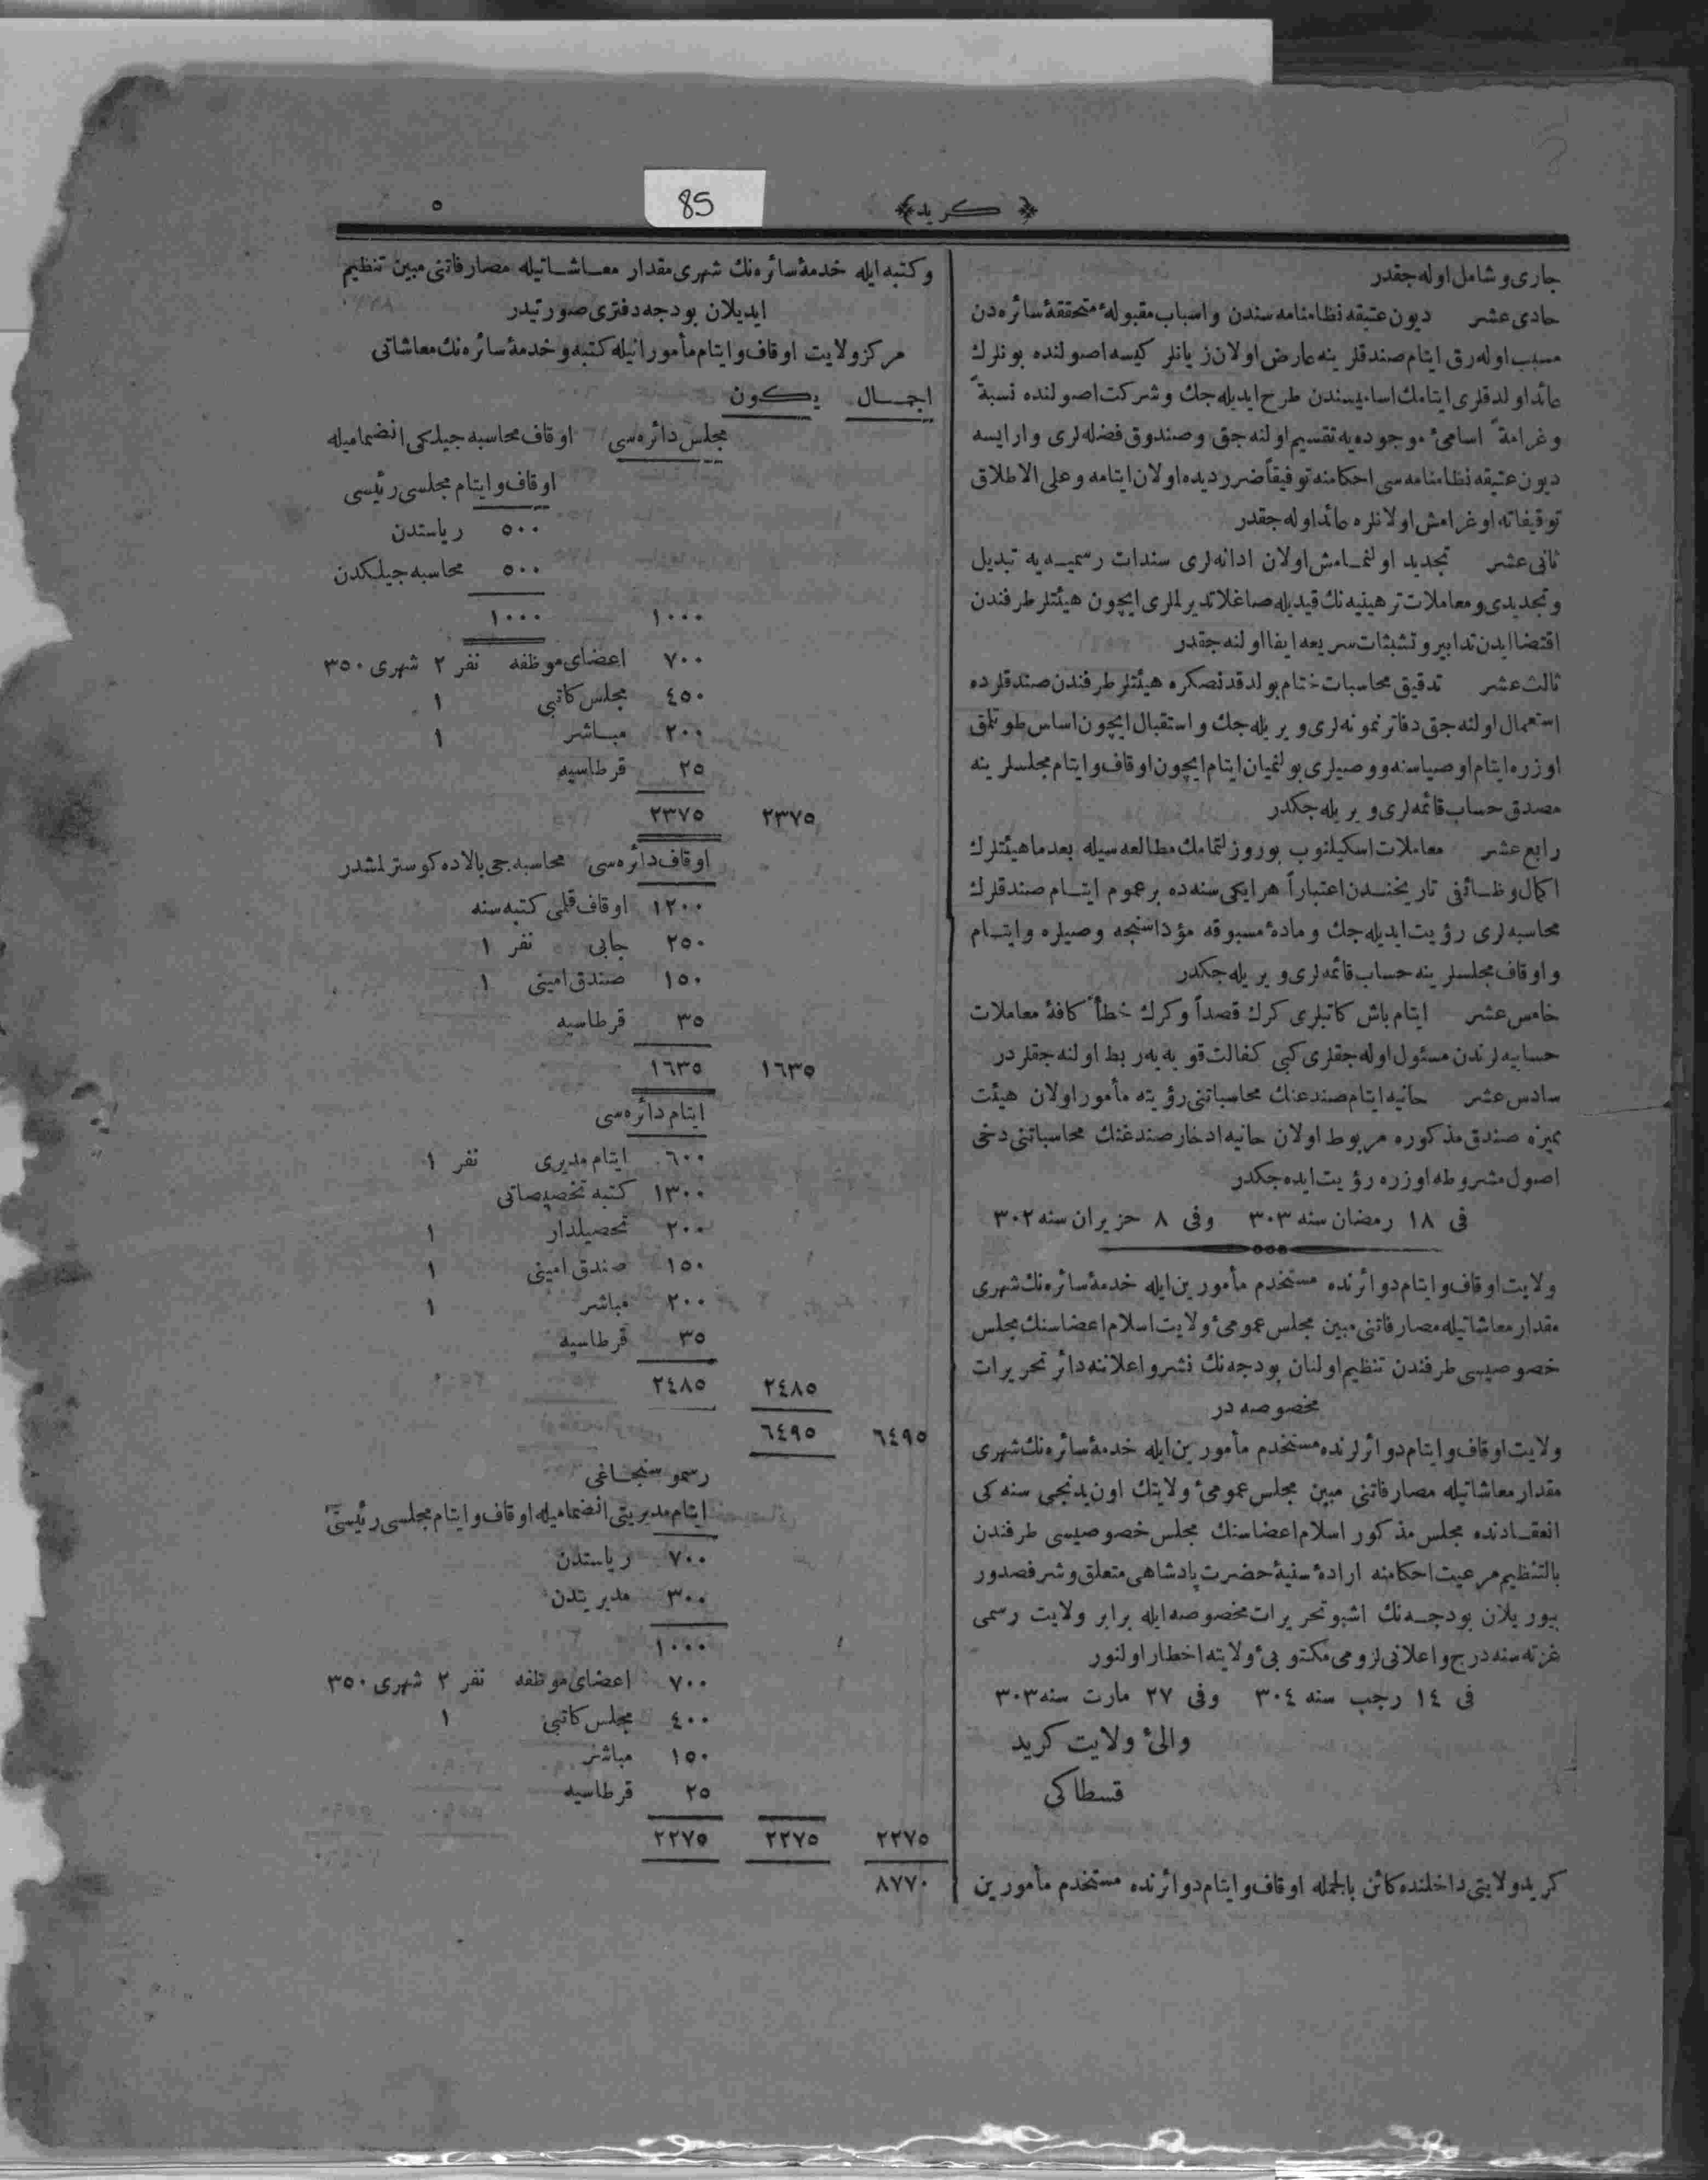 ﴿ كريد ﴾
85
٥
جاری و شامل اوله جقدر
حادی عشر ديون عتيقه نظامنامه سندن و اسباب مقبولهٔ متحققهٔ سائره دن
مسبب اوله رق ايتام صندقلرينه عارض اولان زيانلر كيسه اصولنده بونلرك
عائد اولدقلری ايتامك اساميسندن طرح ايديله جك و شركت اصولنده نسبةً
و غرامةً اسامیٔ موجوده يه تقسيم اولنه جق و صندوق فضله لری وار ايسه
ديون عتيقه نظامنامه سی احكامنه توفيقاً ضررديده اولان ايتامه و علی الاطلاق
توقيفاته اوغرامش اولانلره عائد اوله جقدر
ثانی عشر تجديد اولنمامش اولان ادانه لری سندات رسميه يه تبديل
و تجديدی و معاملات ترهينيه نك قيديله صاغلاتديرلملری ايچون هيئتلر طرفندن
اقتضا ايدن تدابير و تشبثات سريعه ايفا اولنه جقدر
ثالث عشر تدقيق محاسبات ختام بولدقدنصكره هيئتلر طرفندن صندقلرده
استعمال اولنه جق دفاتر نمونه لری ويريله جك و استقبال ايچون اساس طوتلمق
اوزره ايتام اوصياسنه و وصيلری بولنميان ايتام ايچون اوقاف و ايتام مجلسلرينه
مصدق حساب قائمه لری ويريله جكدر
رابع عشر معاملات اسكيلنوب يوروزلنمامك مطالعه سيله بعدما هيئتلرك
اكمال وظائفی تاريخندن اعتباراً هر ايكی سنه ده بر عموم ايتام صندقلرك
محاسبه لری رؤيت ايديله جك و مادهٔ مسبوقه مؤداسنجه وصيلره و ايتام
و اوقاف مجلسلرينه حساب قائمه لری ويريله جكدر
خامس عشر ايتام باش كاتبلری كرك قصداً و كرك خطأً كافهٔ معاملات
حسابيه لرندن مسئول اوله جقلری كبی كفالت قويه يه ربط اولنه جقلردر
سادس عشر حانيه ايتام صندغنك محاسباتنی رؤيته مأمور اولان هيئت
مميزه صندق مذكوره مربوط اولان حانيه ادخار صندغنك محاسباتنی دخی
اصول مشروطه اوزره رؤيت ايده جكدر
فی ١٨ رمضان سنه ٣٠٣ وفی ٨ حزيران سنه ٣٠٢
ولايت اوقاف و ايتام دوائرنده مستخدم مأمورين ايله خدمهٔ سائره نك شهری
مقدار معاشاتيله مصارفاتنی مبين مجلس عمومیٔ ولايت اسلام اعضاسنك مجلس
خصوصيسی طرفندن تنظيم اولنان بودجه نك نشر و اعلاننه دائر تحريرات
مخصوصه در
ولايت اوقاف و ايتام دوائرلرنده مستخدم مأمورين ايله خدمهٔ سائره نك شهری
مقدار معاشاتيله مصارفاتنی مبين مجلس عمومیٔ ولايتك اون يدنجی سنه كی
انعقادنده مجلس مذكور اسلام اعضاسنك مجلس خصوصيسی طرفندن
بالتنظيم مرعيت احكامنه ارادهٔ سنيهٔ حضرت پادشاهی متعلق و شرفصدور
بيوريلان بودجه نك اشبو تحريرات مخصوصه ايله برابر ولايت رسمی
غزته سنه درج و اعلانی لزومی مكتوبیٔ ولايته اخطار اولنور
فی ١٤ رجب سنه ٣٠٤ وفی ٢٧ مارت سنه ٣٠٣
والیٔ ولايت كريد
قسطاكی
كريد ولايتی داخلنده كائن بالجمله اوقاف و ايتام دوائرنده مستخدم مأمورين
و كتبه ايله خدمهٔ سائره نك شهری مقدار معاشاتيله مصارفاتنی مبين تنظيم
ايديلان بودجه دفتری صورتيدر
مركز ولايت اوقاف و ايتام مأمورانيله كتبه و خدمهٔ سائره نك معاشاتی
اجمال يكون
مجلس دائره سی اوقاف محاسبه جيلكی انضماميله
اوقاف و ايتام مجلسی رئيسی
٥٠٠ رياستدن
٥٠٠ محاسبه جيلكدن
١٠٠٠ ١٠٠٠
٧٠٠ اعضای موظفه نفر ٢ شهری ٣٥٠
٤٥٠ مجلس كاتبی ١
٢٠٠ مباشر ١
٢٥ قرطاسيه
٢٣٧٥ ٢٣٧٥
اوقاف دائره سی محاسبه جی بالاده كوسترلمشدر
١٢٠٠ اوقاف قلمی كتبه سنه
٢٥٠ جابی نفر ١
١٥٠ صندق امينی ١
٣٥ قرطاسيه
١٦٣٥ ١٦٣٥
ايتام دائره سی
٦٠٠ ايتام مديری نفر ١
١٣٠٠ كتبه تخصيصاتی
٢٠٠ تحصيلدار ١
١٥٠ صندق امينی ١
٢٠٠ مباشر ١
٣٥ قرطاسيه
٢٤٨٥ ٢٤٨٥
٦٤٩٥ ٦٤٩٥
رسمو سنجاغی
ايتام مديريتی انضماميله اوقاف و ايتام مجلسی رئيسی
٧٠٠ رياستدن
٣٠٠ مديريتدن
١٠٠٠
٧٠٠ اعضای موظفه نفر ٢ شهری ٣٥٠
٤٠٠ مجلس كاتبی ١
١٥٠ مباشر
٢٥ قرطاسيه
٢٢٧٥ ٢٢٧٥ ٢٢٧٥
٨٧٧٠